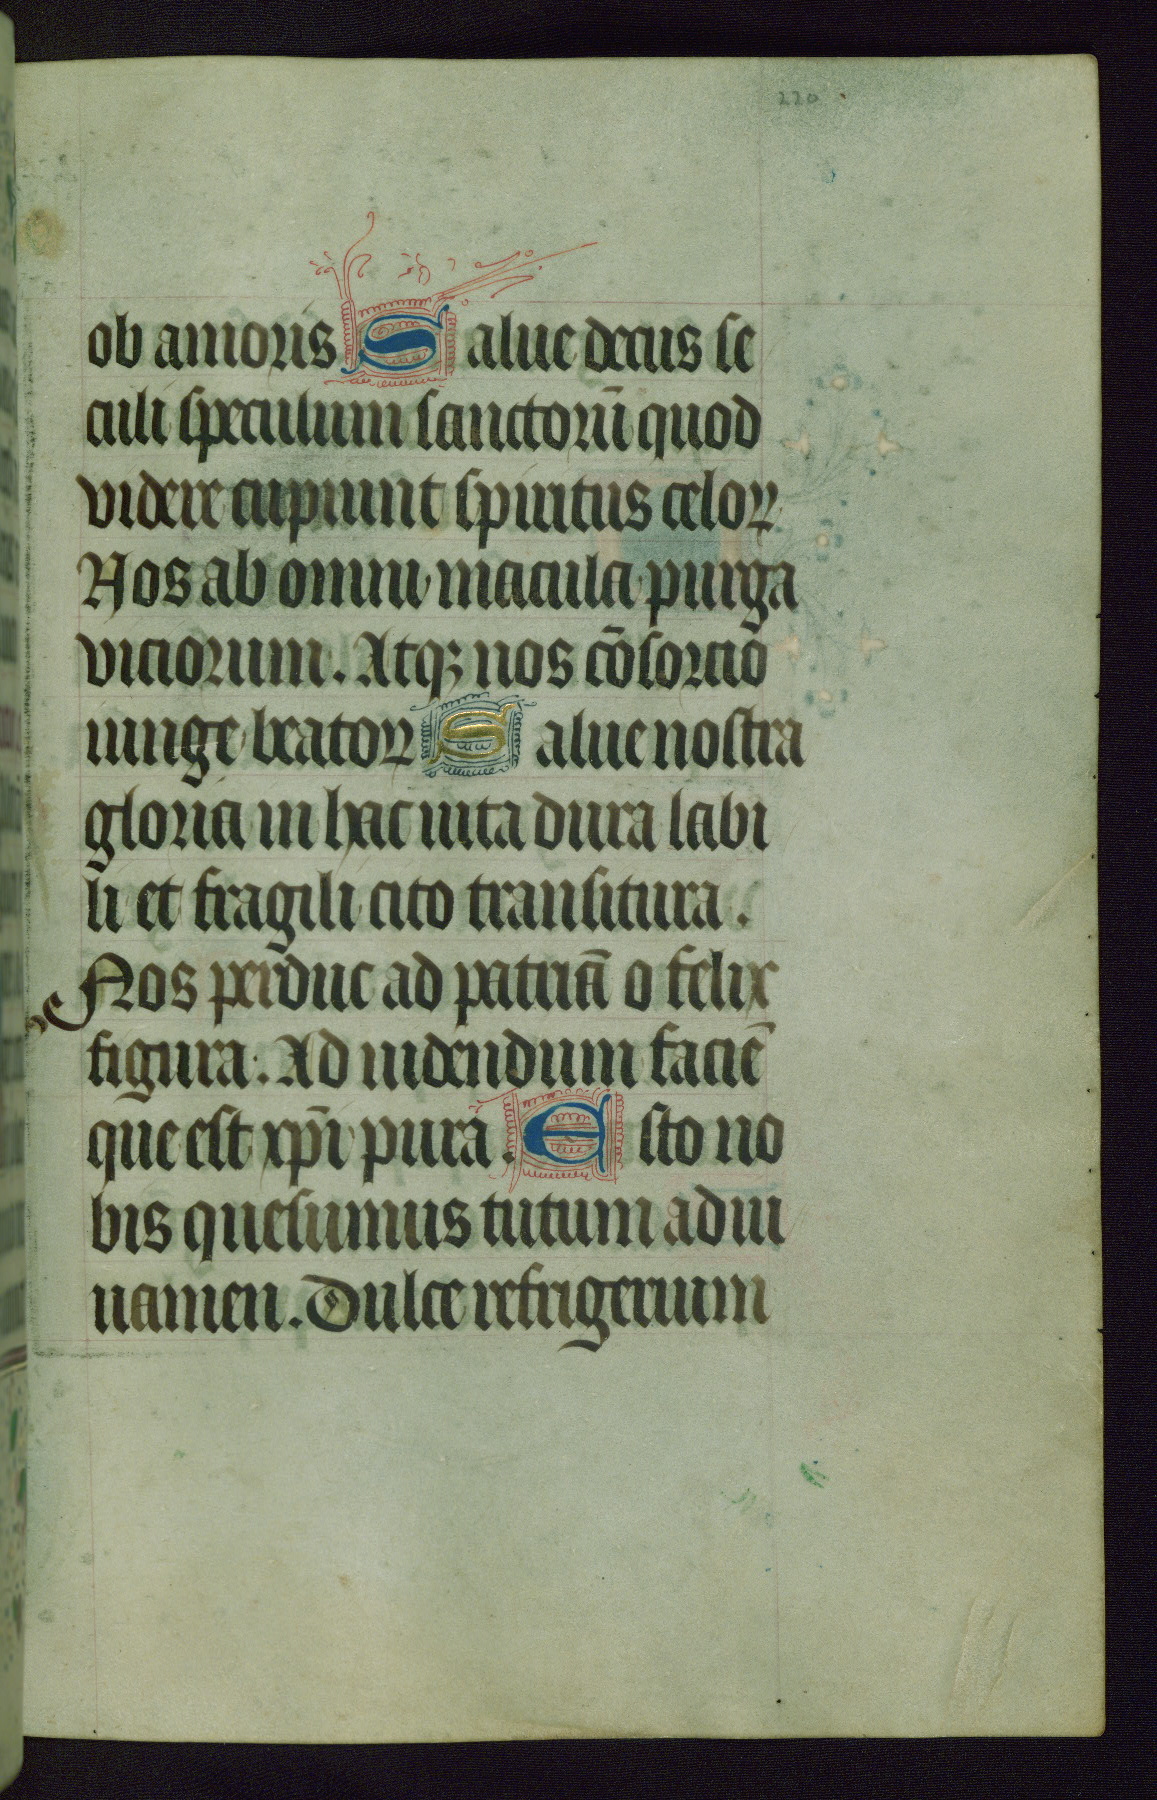 220
ob amoris Salue decus se
culi speculum sanctorū quod
videre cupiunt spiritus celoꝝ
Nos ab omni macula purga
viciorum. Atqꝫ nos cōsorcio
iunge beatoꝝ Salue nostra
gloria in hac uita dura labi
li et fragili cito transitura.
Nos perduc ad patriā o felix
figura. Ad uidendum faciē
que est xp̄i pura. Esto no
bis quesumus tutum adiu
uamen. Dulce refrigerium